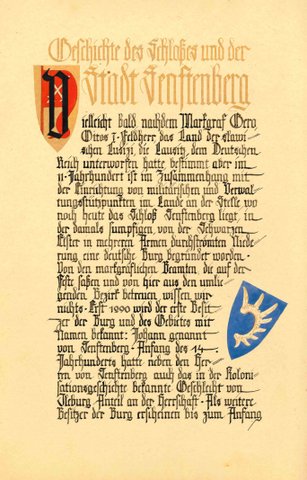 Geschichte des Schloßes und der
Stadt Senftenberg
Vielleicht bald nachdem Markgraf Gero,
Ottos I. Feldherr das Land der slawi-
schen Lusizi, die Lausitz, dem Deutschen
Reich unterworfen hatte, bestimmt aber im
11. Jahrhundert ist im Zusammenhang mit
der Einrichtung von militärischen und Verwal-
tungsstützpunkten im Lande an der Stelle wo
noch heute das Schloß Senftenberg liegt, in
der damals sumpfigen, von der Schwarzen
Elster in mehreren Armen durchströmten Niede-
rung eine deutsche Burg begründet worden.
Von den markgräflichen Beamten die auf der
Feste saßen und von hier aus den umlie-
genden Bezirk betreuen, wissen wir
nichts. Erst 1290 wird der erste Besit-
zer der Burg und des Gebietes mit
Namen bekannt: Johann genannt
von Senftenberg. Anfang des 14.
Jahrhunderts hatte neben den Her-
ren von Senftenberg auch das in der Koloni-
sationsgeschichte bekannte Geschlecht von
Ileburg Anteil an der Herrschaft. Als weitere
Besitzer der Burg erscheinen bis zum Anfang